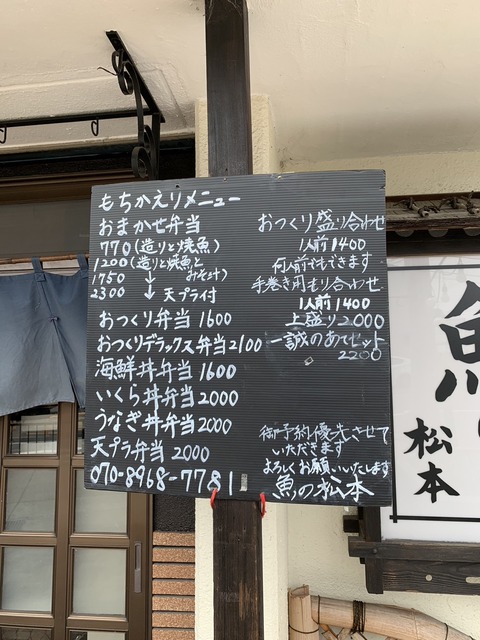 もちかえりメニュー
おまかせ弁当
770(造りと焼魚)
1200(造りと焼魚と
みそ汁)
1750
2300 天プラ付
おつくり弁当 1600
おつくりデラックス弁当2100
海鮮丼弁当 1600
いくら丼弁当2000
うなぎ丼弁当2000
天プラ弁当 2000
070-8968-7781
おつくり盛り合わせ
1人前1400
何人前でもできます
手巻き用もり合わせ
1人前1400
上盛り2000
一誠のあてセット
2200
御予約優先させて
いただきます
よろしくお願いいたします
魚の松本
魚
松本